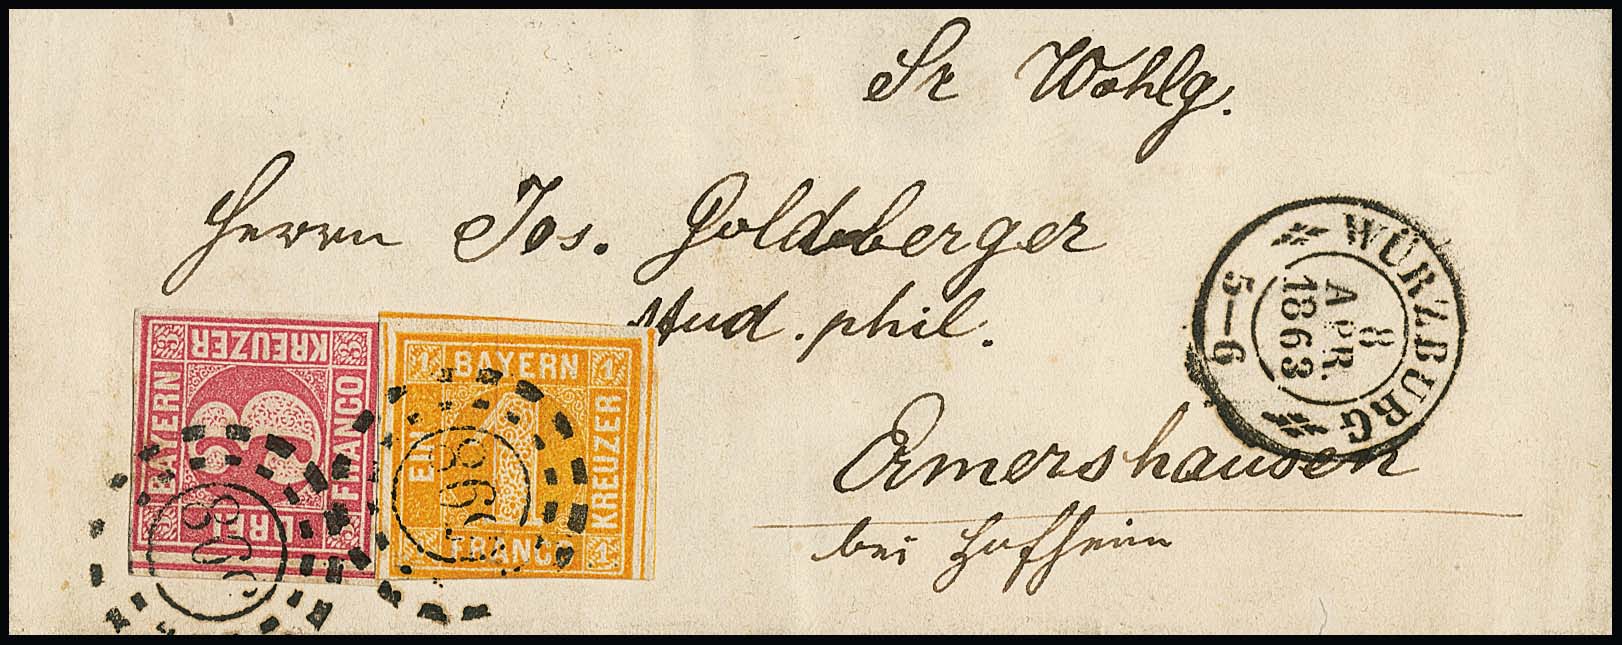 Sr Wohlg.
Herrn Jos. Goldberger
stud. phil.
Ermershausen
bei Hofheim
WÜRZBURG
8
APR.
1863
5—6
3 KREUZER 3
BAYERN
FRANCO
DREI
3
598
1 BAYERN 1
EIN
KREUZER
FRANCO 1
598